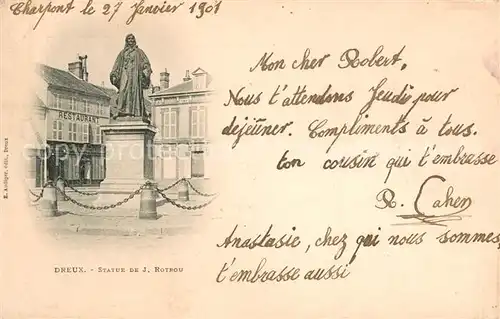 Charpont le 27 Janvier 1901
Mon cher Robert,
Nous t'attendons Jeudi pour
déjeûner. Compliments à tous.
ton cousin qui t'embrasse
R. Cahen
Anastasie, chez qui nous sommes,
t'embrasse aussi
RESTAURANT
DREUX. - STATUE DE J. ROTROU